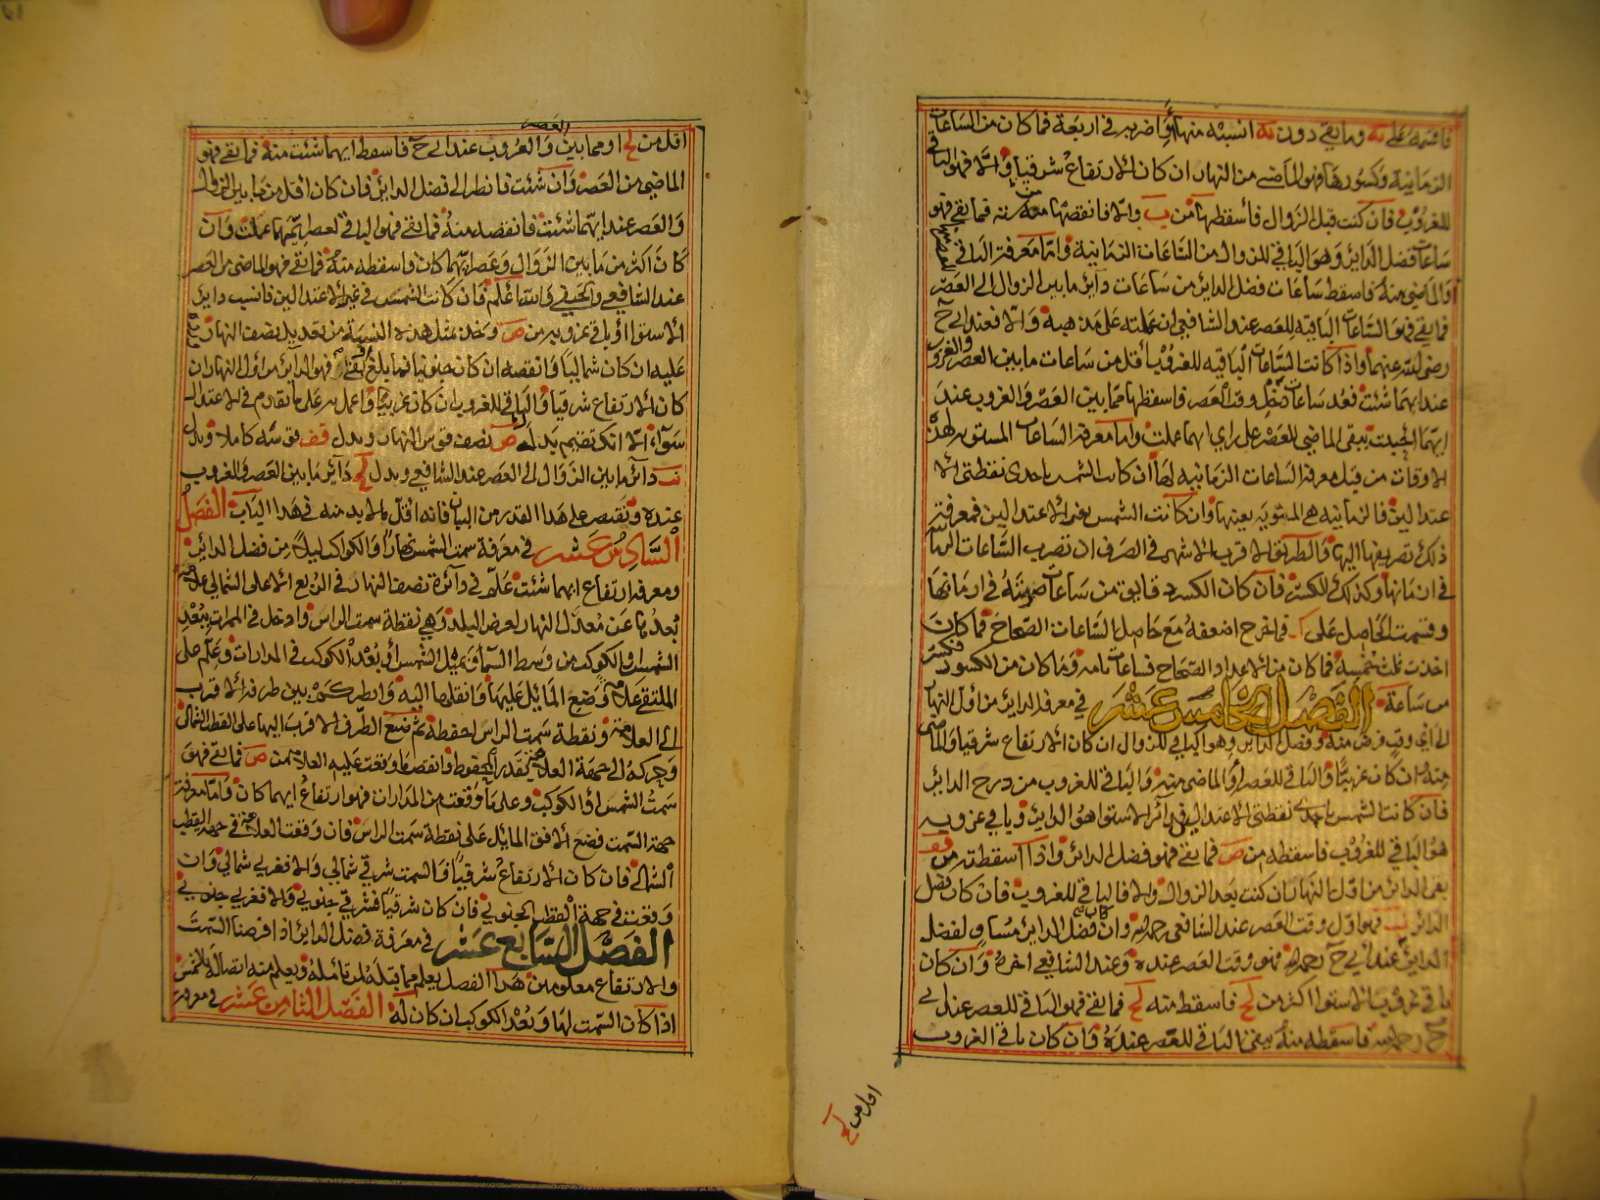 فاقسمه على يه وما بقى دون يه انسبه منها واضربه فى اربعة فما كان من الساعات
الزمانية وكسورها فهو الماضى من النهار ان كان الارتفاع شرقيا والا فهو الباقى
للغروب فان كنت قبل الزوال فاسقطها من والا فانقصها منه ستة فما بقى فهو
ساعات فضل الداير وهو الباقى للزوال من الساعات الزمانية واما معرفة الباقى للعصر
والماضى منه فاسقط ساعات فضل الداير من ساعات داير ما بين الزوال الى العصر
فما بقى فهو الساعات الباقية للعصر عند الشافعى ان عملته على مذهبه والا فعند ابى ح
رضى الله عنهما واذا كانت الساعات الباقيه للغروب اقل من ساعات ما بين العصر والغروب
عند ايهما شئت فعد ساعات وقت العصر فاسقطها مما بين العصر والغروب عند
ايهما يبقى الماضى للعصر على راى ايهما عملت واما معرفة الساعات المستويه لهذه
الاوقات من قبل معرفة الساعات الزمانيه لها ان كانت الشمس باحدى نقطتى الا
عتدالين فالزمانيه هى المستويه بعينها وان كانت الشمس بغير الاعتدالين فمعرفة
ذلك تصريفها اليها والطريق الاقرب الاشهر فى الصرف ان تضرب الساعات الزمانية
فى ازمانها وكذلك للكسر فان كان الكسر دقايق من ساعات ضربته فى ازمانها
وقسمت الحاصل على فما خرج اضفه مع حاصل الساعات الصحاح فما كان
اخذت ثلث خمسه فما كان من الاعداد الصحاح فساعات تامه وما كان من الكسور فكسر
من ساعة الفصل الخامس عشر فى معرفة الداير من اول النهار
الى اى وقت فرض منه وفضل الداير وهو الباقى للزوال ان كان الارتفاع شرقيا والماضى
منه ان كان غربيا والباقى للعصر او الماضى منه والباقى للغروب من درج الداير
فان كانت الشمس باحدى نقطتى الاعتدالين فداير الاستوا هو الداير وباقى غروبه
هو الباقى للغروب فاسقطه من ص فما بقى فهو فضل الداير واذا اسقطته من قف
بقى الداير من اول النهار ان كنت بعد الزوال والا فالباقى للغروب فان كان فضل
الداير نب فهو اول وقت العصر عند الشافعى رحمه الله وان كان فضل الداير مساو لفضل
الداير عند ابى ح رحمه الله فهو وقت العصر عنده وعند الشافعى اخره وان كان
باقى غروب الاستوا اكثر من لح فاسقط منه لح فما بقى فهو الباقى للعصر عند ابى
ح رحمه الله فاسقطه منه يبقى الباقى للعصر عنده وان كان باقى الغروب
اقل من لح
العصر
اقل من لح او مما بين والغروب عند ابى ح فاسقط ايهما شئت منه فما بقى فهو
الماضى من العصر وان شئت فانظر الى فضل الداير فان كان اقل من ما بين الزوال
والعصر عند ايهما شئت فانقصه منه فما بقى فهو الباقى لعصر ايهما عملت وان
كان اكثر من ما بين الزوال وعصر ايهما كان فاسقطه منه فما بقى فهو الماضى من العصر
عند الشافعى والحنفى والله اعلم فان كانت الشمس فى غير الاعتدالين فانسب داير
الاستوا او باقى غروبه من ص وخذ بمثل هذه النسبة من تعديل نصف النهار زده
عليه ان كان شماليا وانقصه ان كان جنوبيا فما بلغ او بقى فهو الداير من اول النهار ان
كان الارتفاع شرقيا والباقى للغروب ان كان غربيا واعمل به على ما تقدم فى الاعتدال
سواء الا انك تقيم بدل ص نصف قوس النهار وبدل قف قوسه كاملا وبدل
نب داير ما بين الزوال الى العصر عند الشافعى وبدل لح داير ما بين العصر والغروب
عنده ونقتصر على هذا القدر من البيان فانه اقل ما لابد منه فى هذا الباب الفصل
السادس عشر فى معرفة سمت الشمس نهارا والكواكب ليلا من فضل الداير
ومعرفة ارتفاع ايهما شئت علم فى دائرة نصف النهار فى الربع الاعلى الشمالى علامة
بعدها عن معدل النهار لعرض البلد وهى نقطة سمت الراس وادخل فى الممرات ببعد
الشمس او الكوكب من وسط السما وبميل الشمس او بعد الكوكب فى المدارات وعلم على
الملتقى علامة وضع المايل عليها وانقلها اليه وانظر كم بين طرفه الاقرب
الى العلامة ونقطة سمت الراس احفظه ثم ضع الطرف الاقرب اليها على القطب الشمالى
وحركه الى جهة العلامة بقدر المحفوظ وانقص ما وقعت عليه العلامة من ص فما بقى فهو
سمت الشمس او الكوكب وعلى ما وقعت من المدارات فهو ارتفاع ايهما كان واما معرفة
جهة السمت فضع الافق المايل على نقطة سمت الراس فان وقعت العلامة فى جهة القطب
الشمالى فان كان الارتفاع شرقيا فالسمت شرقى شمالى والا فغربى شمالى وان
وقعت فى جهة القطب الجنوبى فان كان شرقيا فشرقى جنوبى والا فغربى جنوبى
الفصل السابع عشر فى معرفة فضل الداير اذا فرضنا السمت
والارتفاع معلومين هذا الفصل يعلم مما قبله لمن تامله ويعلم منه اتصاله بالخمس
اذا كان السمت لها وبعد الكوكب ان كان له الفصل الثامن عشر فى معرفة